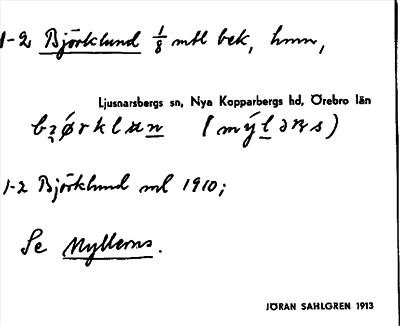 1-2 Björklund 1/8 mtl bek, hmn,
Ljusnarsbergs sn, Nya Kopparbergs hd, Örebro län
1-2 Björklund ml 1910;
Se Myllerns.
JÖRAN SAHLGREN 1913